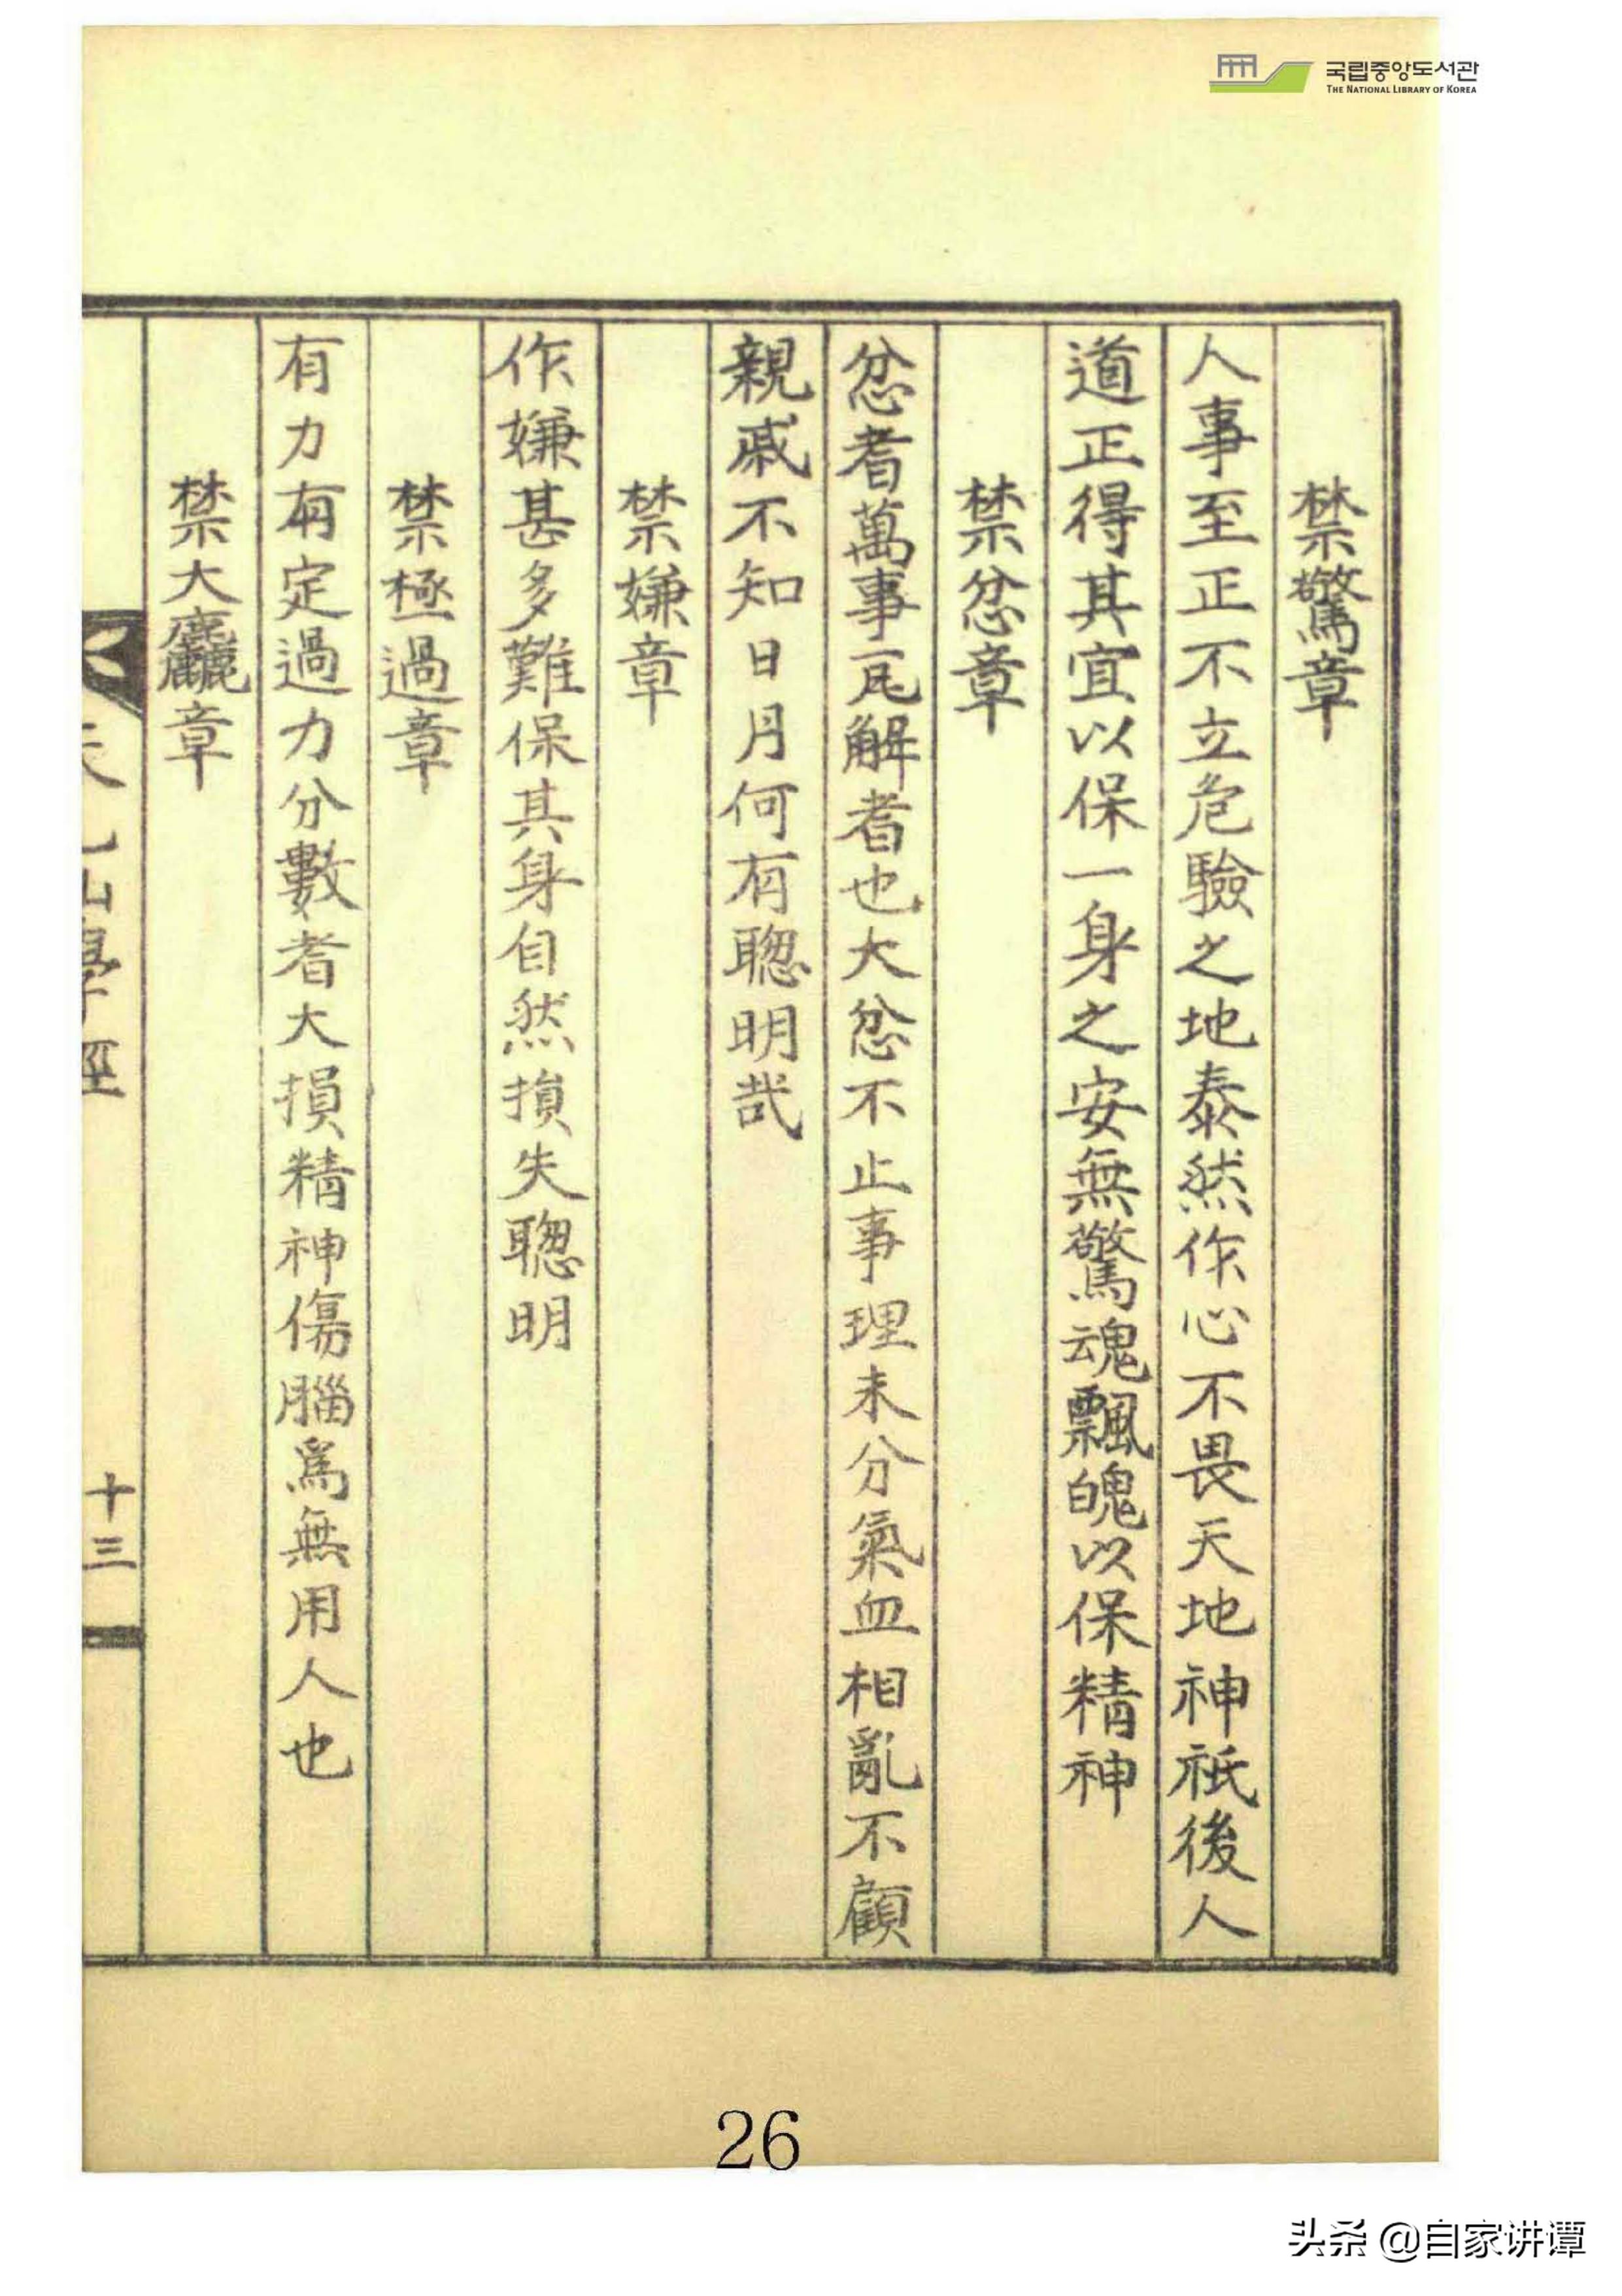 국립중앙도서관
THE NATIONAL LIBRARY OF KOREA
禁驚章
人事至正不立危驗之地泰然作心不畏天地神祇後人
道正得其宜以保一身之安無驚魂飄魄以保精神
禁忿章
忿者萬事瓦解者也大忿不止事理未分氣血相亂不顧
親戚不知日月何有聰明哉
禁嫌章
作嫌甚多難保其身自然損失聰明
禁極過章
有力有定過力分數者大損精神傷腦爲無用人也
禁大麤章
學經
十三
26
头条 @自家讲谭